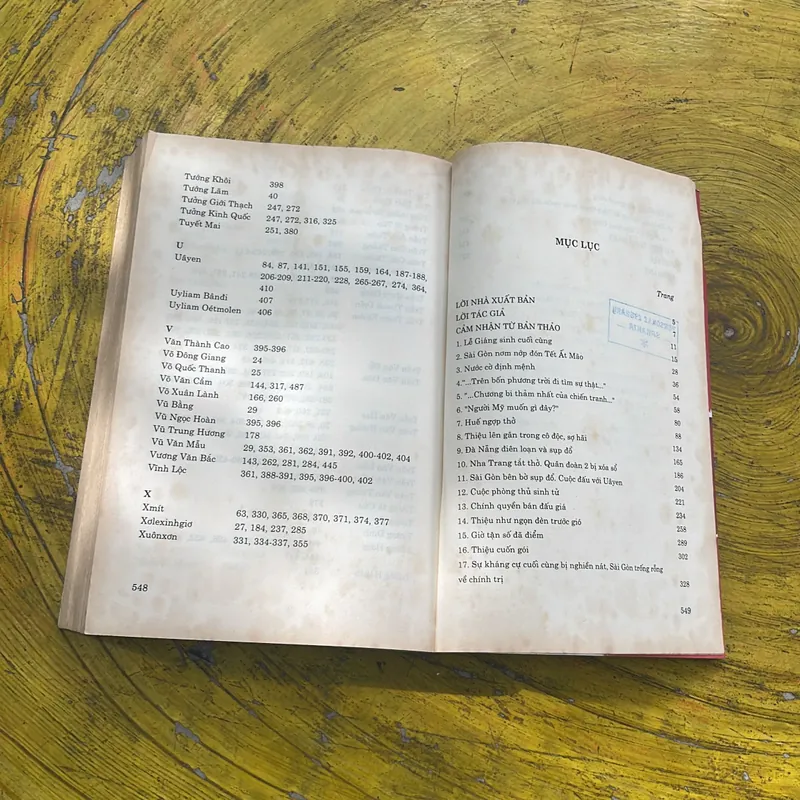 Tưởng Khôi 398
Tưởng Lâm 40
Tưởng Giới Thạch 247, 272
Tưởng Kinh Quốc 247, 272, 316, 325
Tuyết Mai 251, 380
U
Uâyen 84, 87, 141, 151, 155, 159, 164, 187-188,
206-209, 211-220, 228, 265-267, 274, 364,
410
Uyliam Bânđi 407
Uyliam Oétmolen 406
V
Văn Thành Cao 395-396
Võ Đông Giang 24
Võ Quốc Thanh 25
Võ Văn Cầm 144, 317, 487
Võ Xuân Lành 166, 260
Vũ Bằng 29
Vũ Ngọc Hoàn 395, 396
Vũ Trung Hương 178
Vũ Văn Mẫu 29, 353, 361, 362, 391, 392, 400-402, 404
Vương Văn Bắc 143, 262, 281, 284, 445
Vĩnh Lộc 361, 388-391, 395, 396-400, 402
X
Xmít 63, 330, 365, 368, 370, 371, 374, 377
Xơlexinhgiơ 27, 184, 237, 285
Xuônxơn 331, 334-337, 355
548
MỤC LỤC
Trang
LỜI NHÀ XUẤT BẢN 5
LỜI TÁC GIẢ 7
CẢM NHẬN TỪ BẢN THẢO 11
1. Lễ Giáng sinh cuối cùng 15
2. Sài Gòn nơm nớp đón Tết Ất Mão 28
3. Nước cờ định mệnh 36
4."...Trên bốn phương trời đi tìm sự thật..." 54
5. "...Chương bi thảm nhất của chiến tranh..." 58
6. "Người Mỹ muốn gì đây?" 80
7. Huế ngợp thở 88
8. Thiệu lên gân trong cô độc, sợ hãi 134
9. Đà Nẵng điên loạn và sụp đổ 165
10. Nha Trang tắt thở. Quân đoàn 2 bị xóa sổ 186
11. Sài Gòn bên bờ sụp đổ. Cuộc đấu với Uâyen 204
12. Cuộc phòng thủ sinh tử 221
13. Chính quyền bán đấu giá 234
14. Thiệu như ngọn đèn trước gió 258
15. Giờ tận số đã điểm 289
16. Thiệu cuốn gói 302
17. Sự kháng cự cuối cùng bị nghiền nát, Sài Gòn trống rỗng
về chính trị 328
549